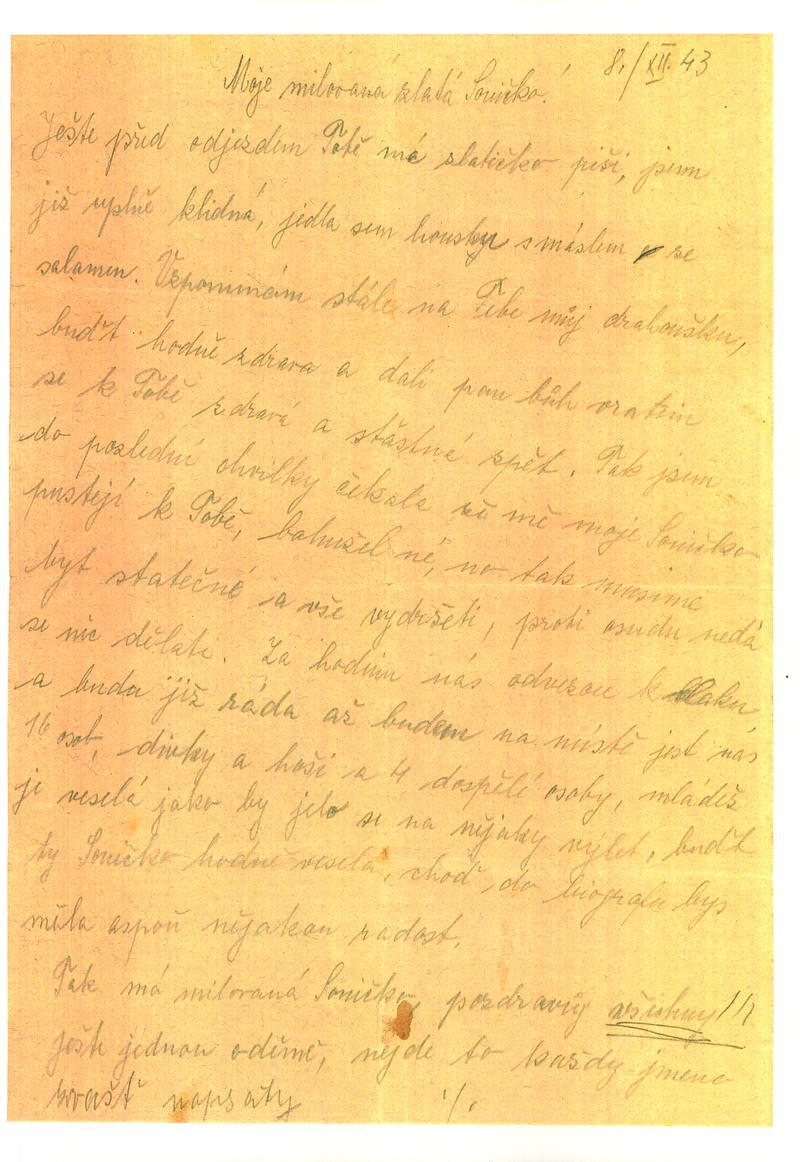 8./XII. 43
Moje milovaná zlatá Soničko!
Ještě před odjezdem Tobě má zlatičko piši, jsem
již uplně klidná, jedla sem housky s máslem a se
salamem. Vzpominám stále na Tebe můj drahoušku,
buďt hodně zdrava a dali pan bůh vratim
se k Tobě zdravá a štástná zpět. Tak jsem
do poslední chvilky čekala že mě moje Soničko
pustějí k Tobě, bohužel né, no tak musime
byt statečné a vše vydržeti, proti osudu nedá
se nic dělati. Za hodinu nás odvezou k vlaku
a budu již ráda až budem na místě jest nás
16 osob, divky a hoši a 4 dospělé osoby, mládež
je veselá jako by jelo se na nějaky výlet, buďt
ty Soničko hodně vesela, choď do biografu bys
měla aspoň nějakou radost.
Tak má milovaná Soničko, pozdravůj všichny!!!
ješti jednou odemě, nejde to každy jmeno
zvlašť napsaty ·/.